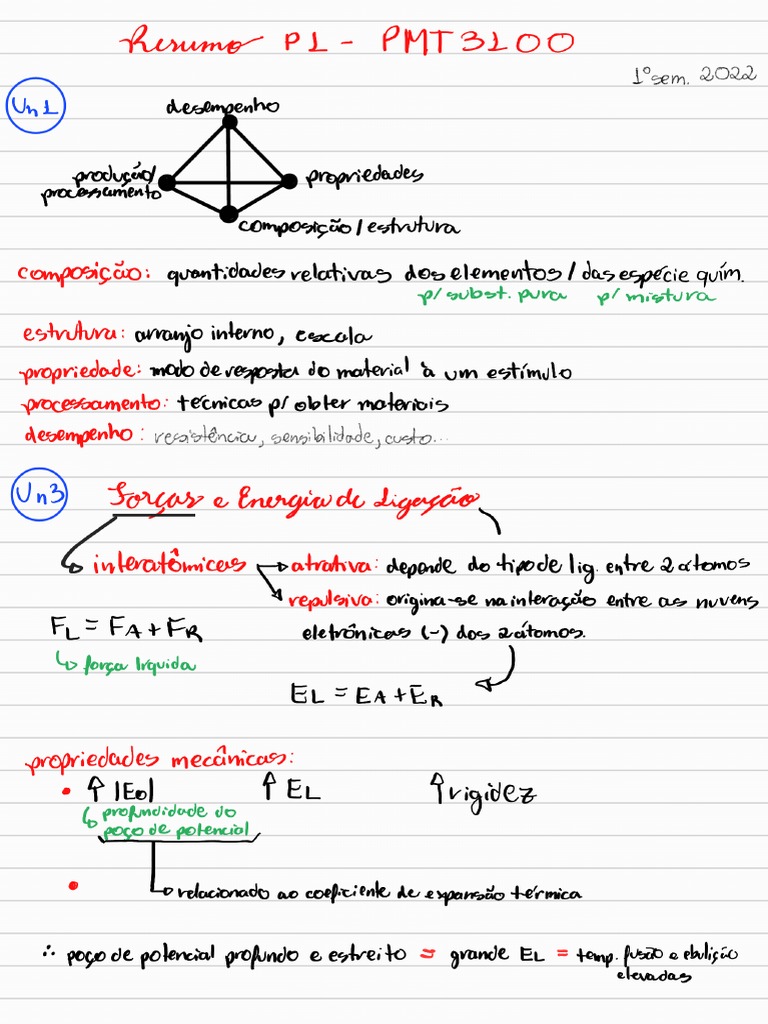 Resumo P1 - PMT3100
1º sem. 2022
Un1
desempenho
produção/
processamento
propriedades
composição/estrutura
composição: quantidades relativas dos elementos / das espécie quím.
p/ subst. pura p/ mistura
estrutura: arranjo interno, escala
propriedade: modo de resposta do material à um estímulo
processamento: técnicas p/ obter materiais
desempenho: resistência, sensibilidade, custo...
Un3
Forças e Energia de Ligação
interatômicas
atrativa: depende do tipo de lig. entre 2 átomos
repulsiva: origina-se na interação entre as nuvens
eletrônicas (-) dos 2 átomos.
FL = FA + FR
força líquida
EL = EA + ER
propriedades mecânicas:
• ↑ |E0| ↑ EL ↑ rigidez
profundidade do
poço de potencial
• relacionado ao coeficiente de expansão térmica
∴ poço de potencial profundo e estreito = grande EL = temp. fusão e ebulição
elevadas